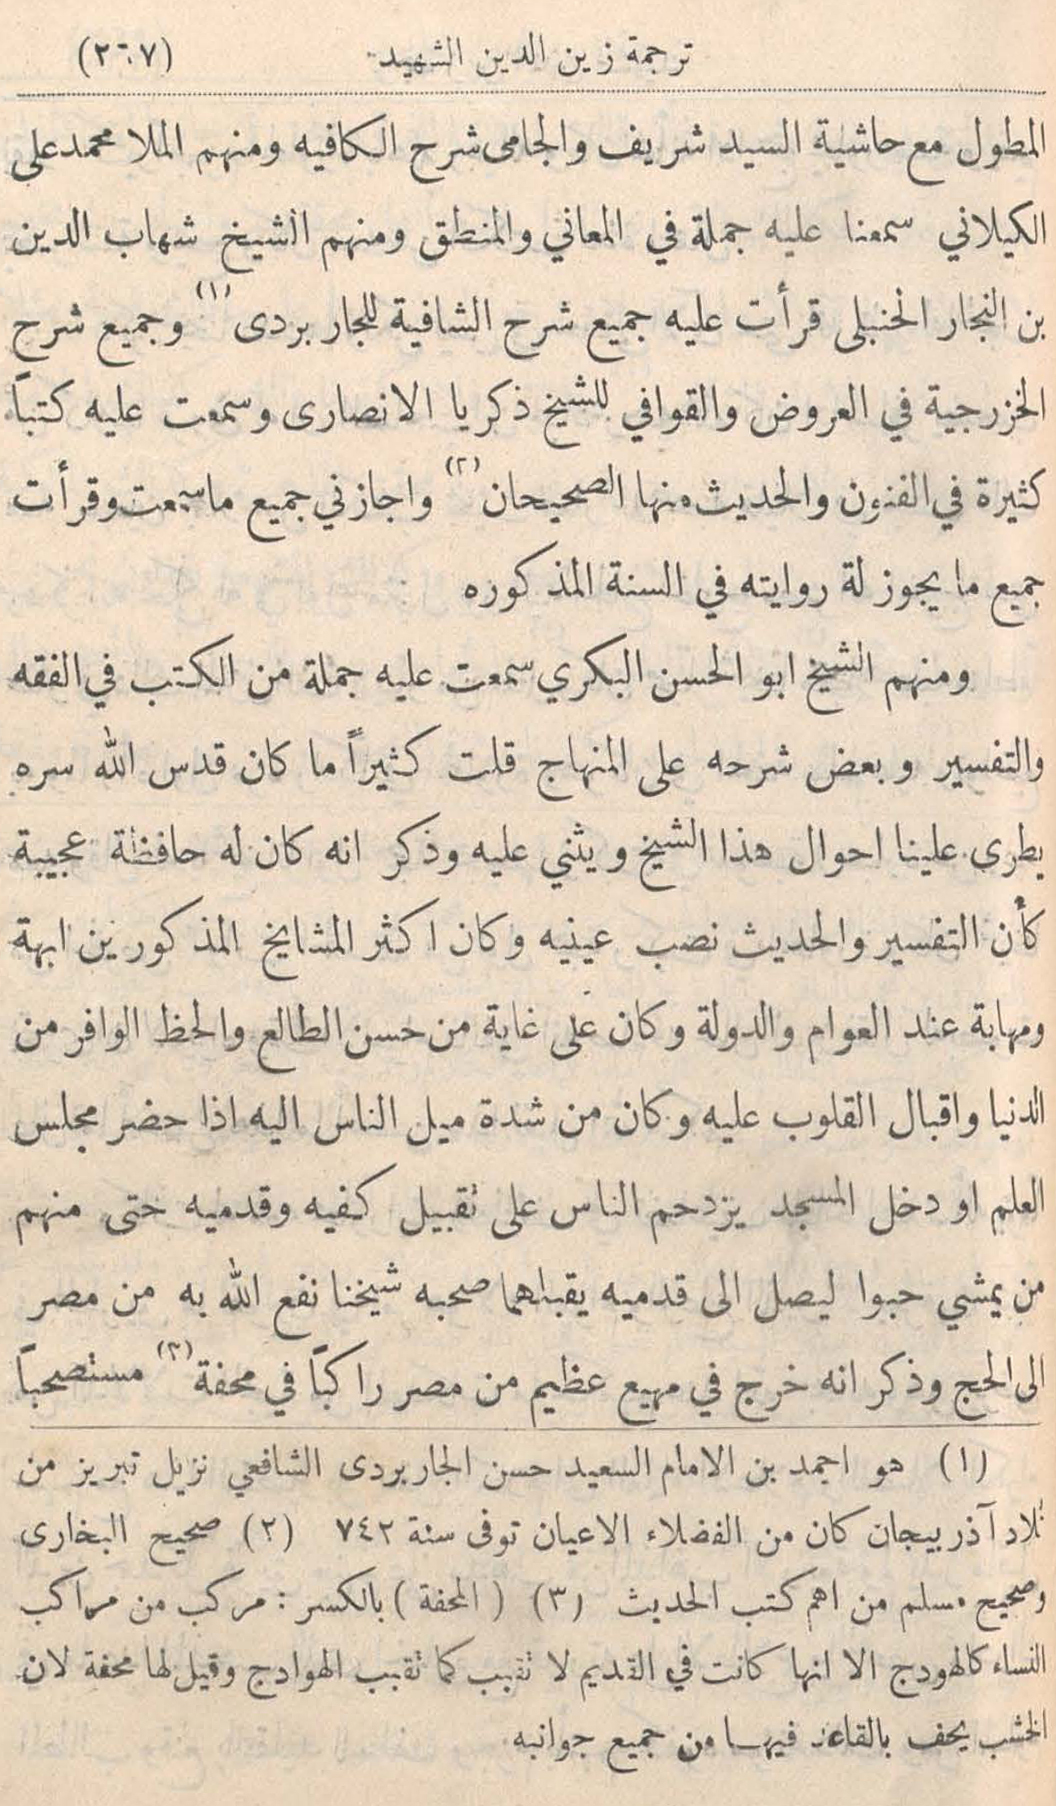 ترجمة زين الدين الشهيد (٢٦٧)
المطول مع حاشية السيد شريف والجامى شرح الكافيه ومنهم الملا محمد على
الكيلاني سمعنا عليه جملة في المعاني والمنطق ومنهم الشيخ شهاب الدين
بن النجار الحنبلى قرأت عليه جميع شرح الشافية للجار بردى (١) وجميع شرح
الخزرجية في العروض والقوافي للشيخ ذكريا الانصارى وسمعت عليه كتباً
كثيرة في الفنون والحديث منها الصحيحان (٢) واجازني جميع ما سمعت وقرأت
جميع ما يجوز لة روايته في السنة المذكوره
ومنهم الشيخ ابو الحسن البكري سمعت عليه جملة من الكتب في الفقه
والتفسير وبعض شرحه على المنهاج قلت كثيراً ما كان قدس الله سره
يطرى علينا احوال هذا الشيخ ويثني عليه وذكر انه كان له حافظة عجيبة
كأن التفسير والحديث نصب عينيه وكان اكثر المشايخ المذكورين ابهة
ومهابة عند العوام والدولة وكان على غاية من حسن الطالع والحظ الوافر من
الدنيا واقبال القلوب عليه وكان من شدة ميل الناس اليه اذا حضر مجلس
العلم او دخل المسجد يزدحم الناس على تقبيل كفيه وقدميه حتى منهم
من يمشي حبوا ليصل الى قدميه يقبلهما صحبه شيخنا نفع الله به من مصر
الى الحج وذكر انه خرج في مهيع عظيم من مصر راكباً في محفة (٣) مستصحباً
(١) هو احمد بن الامام السعيد حسن الجاربردى الشافعي نزيل تبريز من
بلاد آذربيجان كان من الفضلاء الاعيان توفى سنة ٧٤٢ (٢) صحيح البخارى
وصحيح مسلم من اهم كتب الحديث (٣) (المحفة) بالكسر : مركب من مراكب
النساء كالهودج الا انها كانت في القديم لا تقبب كما تقبب الهوادج وقيل لها محفة لان
الخشب يحف بالقاعد فيها من جميع جوانبه